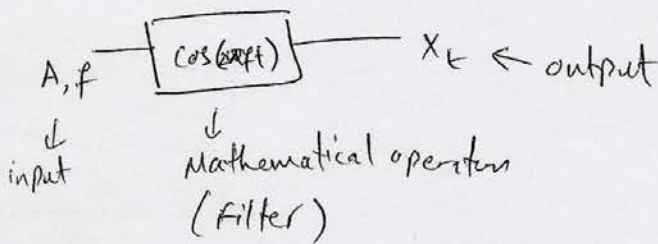 A, f cos(2πft) X_t ← output
↓ ↓
input Mathematical operators
(Filter)